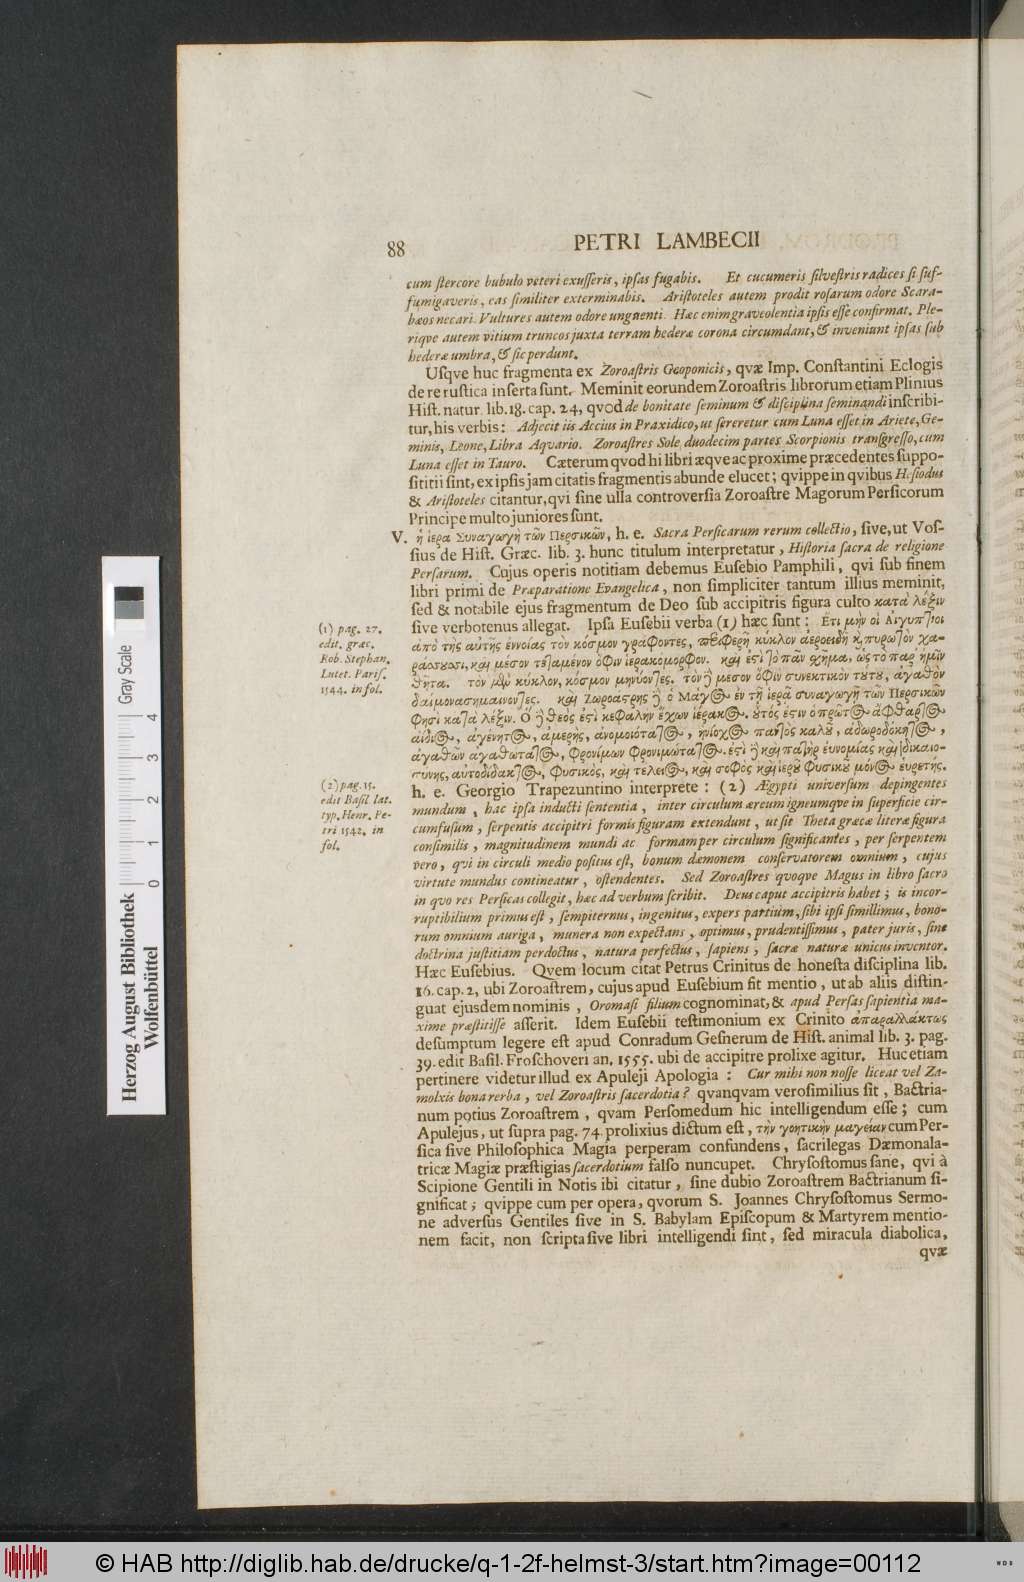 88 PETRI LAMBECII
cum stercore bubulo veteri exusseris, ipsas fugabis. Et cucumeris silvestris radices si suf-
fumigaveris, eas similiter exterminabis. Aristoteles autem prodit rosarum odore Scara-
bæos necari. Vultures autem odore ungventi. Hæc enim graveolentia ipsis esse confirmat. Ple-
riqve autem vitium truncos juxta terram hederæ corona circumdant, & inveniunt ipsas sub
hederæ umbra, & sic perdunt.
Usqve huc fragmenta ex Zoroastris Geoponicis, qvæ Imp. Constantini Eclogis
de re rustica inserta sunt. Meminit eorundem Zoroastris librorum etiam Plinius
Hist. natur. lib. 18. cap. 24, qvod de bonitate seminum & disciplina seminandi inscribi-
tur, his verbis: Adjecit iis Accius in Praxidico, ut sereretur cum Luna esset in Ariete, Ge-
minis, Leone, Libra Aqvario. Zoroastres Sole duodecim partes Scorpionis transgresso, cum
Luna esset in Tauro. Cæterum qvod hi libri æqve ac proxime præcedentes suppo-
sititii sint, ex ipsis jam citatis fragmentis abunde elucet; qvippe in qvibus Hesiodus
& Aristoteles citantur, qvi sine ulla controversia Zoroastre Magorum Persicorum
Principe multo juniores sunt.
V. ἡ ἱερα Συναγωγὴ τῶν Περσικῶν, h. e. Sacra Persicarum rerum collectio, sive, ut Vos-
sius de Hist. Græc. lib. 3. hunc titulum interpretatur, Historia sacra de religione
Persarum. Cujus operis notitiam debemus Eusebio Pamphili, qvi sub finem
libri primi de Præparatione Evangelica, non simpliciter tantum illius meminit,
sed & notabile ejus fragmentum de Deo sub accipitris figura culto κατὰ λέξιν
sive verbotenus allegat. Ipsa Eusebii verba (1) hæc sunt: Ἔτι μὴν οἱ Αἰγυπτιοι
ἀπὸ τῆς αὐτῆς ἐννοίας τὸν κόσμον γράφοντες, περιφερῆ κύκλον ἀεροειδῆ κ̀ πυρωτὸν χα-
ράσσουσι, καὶ μέσον τεταμένον ὄφιν ἱερακομορφον. καὶ ἐστὶ τὸ πᾶν σχῆμα, ὡς τὸ παρ' ἡμῖν
θῆτα. τὸν μὲν κύκλον, κόσμον μηνύοντες. τὸν δὲ μεσον ὄφιν συνεκτικὸν τούτου, ἀγαθὸν
δαίμονα σημαινοντες. καὶ Ζωροαστρης δὲ ὁ Μάγος ἐν τῇ ἱερᾷ συναγωγῇ τῶν Περσικῶν
φησὶ κατὰ λέξιν. Ὁ δὲ θεὸς ἐστὶ κεφαλὴν ἔχων ἱέρακος. οὗτός ἐστιν ὁ πρῶτος ἄφθαρτος
ἀίδιος, ἀγένητος, ἀμερὴς, ἀνομοιότατος, ἡνίοχος παντὸς καλοῦ, ἀδωροδόκητος,
ἀγαθῶν ἀγαθώτατος, φρονίμων φρονιμώτατος. ἐστὶ δὲ καὶ πατὴρ εὐνομίας καὶ δικαιο-
σύνης, αὐτοδίδακτος, φυσικὸς, καὶ τέλειος, καὶ σοφὸς καὶ ἱεροῦ φυσικοῦ μόνος εὑρετής.
h. e. Georgio Trapezuntino interprete: (2) Ægypti universum depingentes
mundum, hac ipsa inducti sententia, inter circulum æreum igneumqve in superficie cir-
cumfusum, serpentis accipitri formis figuram extendunt, ut sit Theta græcæ literæ figura
consimilis, magnitudinem mundi ac formam per circulum significantes, per serpentem
vero, qvi in circuli medio positus est, bonum dæmonem conservatorem omnium, cujus
virtute mundus contineatur, ostendentes. Sed Zoroastres qvoqve Magus in libro sacro
in qvo res Persicas collegit, hæc ad verbum scribit. Deus caput accipitris habet; is incor-
ruptibilium primus est, sempiternus, ingenitus, expers partium, sibi ipsi simillimus, bono-
rum omnium auriga, munera non expectans, optimus, prudentissimus, pater juris, sine
doctrina justitiam perdoctus, natura perfectus, sapiens, sacræ naturæ unicus inventor.
Hæc Eusebius. Qvem locum citat Petrus Crinitus de honesta disciplina lib.
16. cap. 2, ubi Zoroastrem, cujus apud Eusebium fit mentio, ut ab aliis distin-
guat ejusdem nominis, Oromasi filium cognominat, & apud Persas sapientia ma-
xime præstitisse asserit. Idem Eusebii testimonium ex Crinito ἀπαραλλάκτως
desumptum legere est apud Conradum Gesnerum de Hist. animal lib. 3. pag.
39. edit Basil. Froschoveri an. 1555. ubi de accipitre prolixe agitur. Huc etiam
pertinere videtur illud ex Apuleji Apologia: Cur mihi non nosse liceat vel Za-
molxis bona verba, vel Zoroastris sacerdotia? qvanqvam verosimilius sit, Bactria-
num potius Zoroastrem, qvam Persomedum hic intelligendum esse; cum
Apulejus, ut supra pag. 74. prolixius dictum est, τὴν γοητικὴν μαγείαν cum Per-
sica sive Philosophica Magia perperam confundens, sacrilegas Dæmonala-
tricæ Magiæ præstigias sacerdotium falso nuncupet. Chrysostomus sane, qvi à
Scipione Gentili in Notis ibi citatur, sine dubio Zoroastrem Bactrianum si-
gnificat; qvippe cum per opera, qvorum S. Joannes Chrysostomus Sermo-
ne adversus Gentiles sive in S. Babylam Episcopum & Martyrem mentio-
nem facit, non scripta sive libri intelligendi sint, sed miracula diabolica,
qvæ
(1) pag. 27.
edit. græc.
Rob. Stephan.
Lutet. Paris.
1544. in fol.
(2) pag. 15.
edit Basil lat.
typ. Henr. Pe-
tri 1542. in
fol.
Herzog August Bibliothek
Wolfenbüttel
Gray Scale
0 1 2 3 4
© HAB http://diglib.hab.de/drucke/q-1-2f-helmst-3/start.htm?image=00112